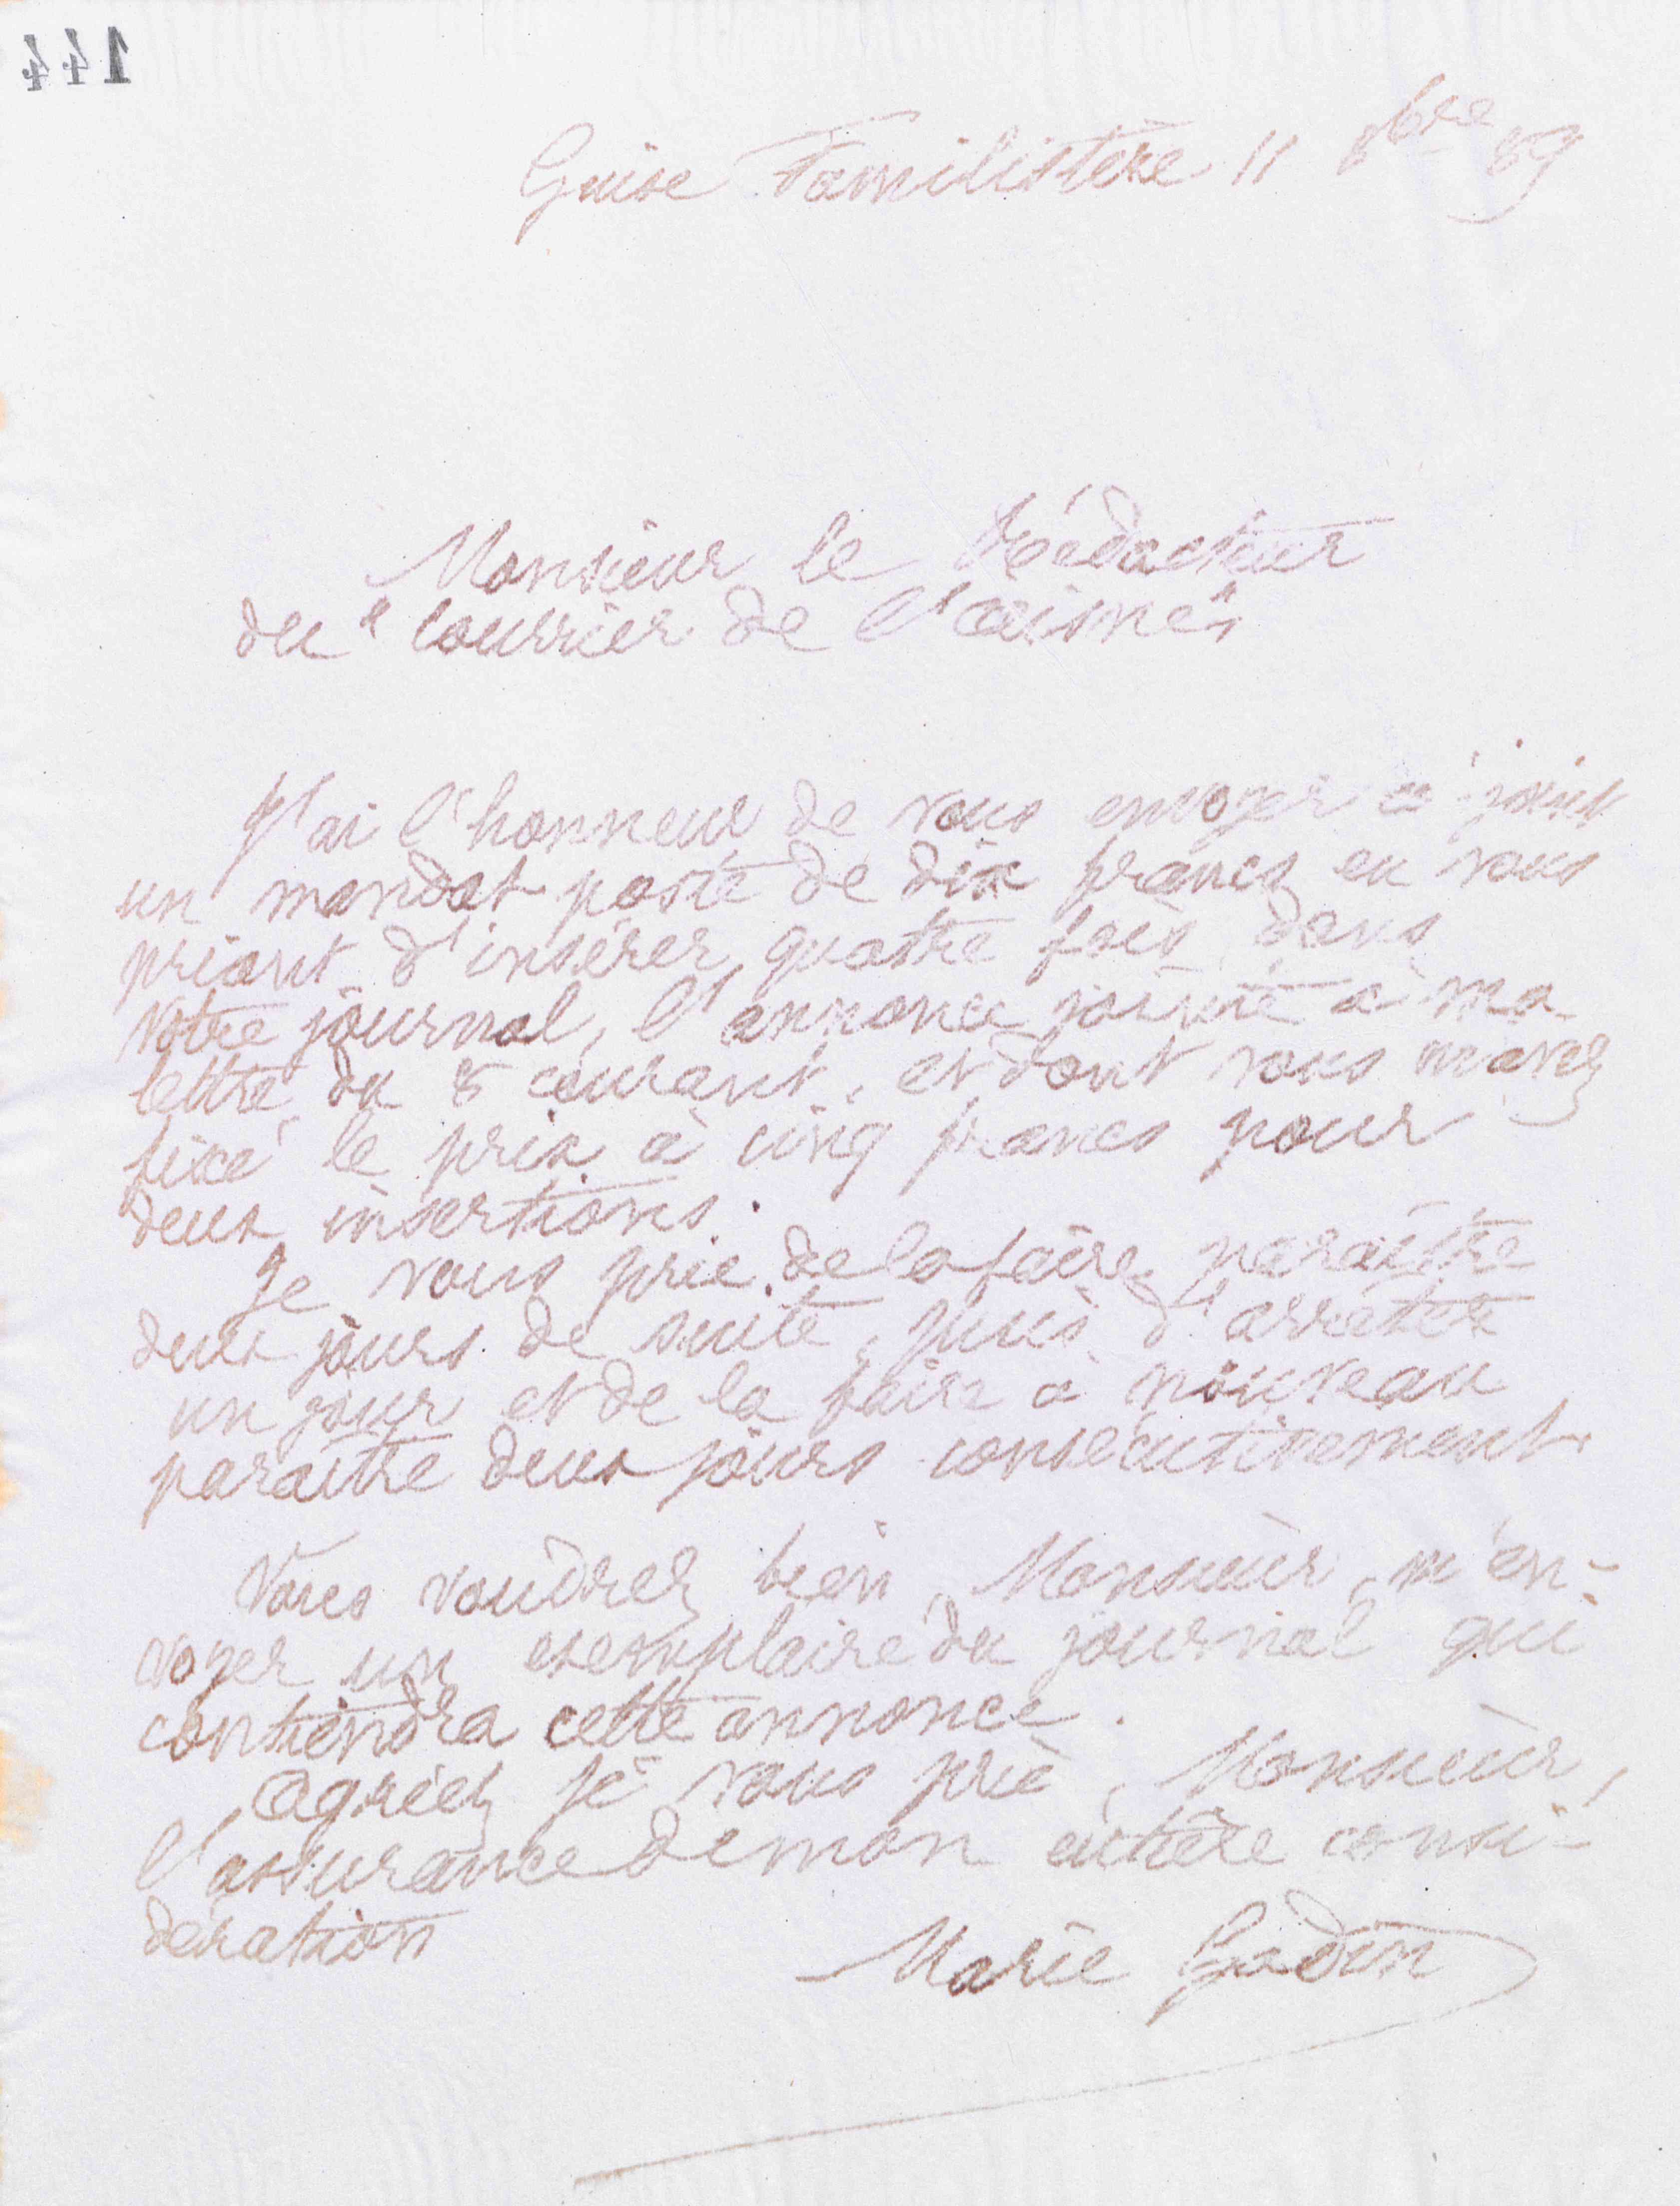 144
Guise Familistère 11 8bre 89
Monsieur le Rédacteur
du "Courrier de l'Aisne"
J'ai l'honneur de vous envoyer ci-joint
un mandat poste de dix francs en vous
priant d'insérer quatre fois dans
votre journal, l'annonce jointe à ma
lettre du 8 courant, et dont vous m'avez
fixé le prix à cinq francs pour
deux insertions.
Je vous prie de la faire paraître
deux jours de suite, puis d'arrêter
un jour et de la faire à nouveau
paraître deux jours consécutivement.
Vous voudrez bien, Monsieur, m'en-
voyer un exemplaire du journal qui
contiendra cette annonce.
Agréez je vous prie, Monsieur,
l'assurance de mon entière consi-
dération
Marie Godin